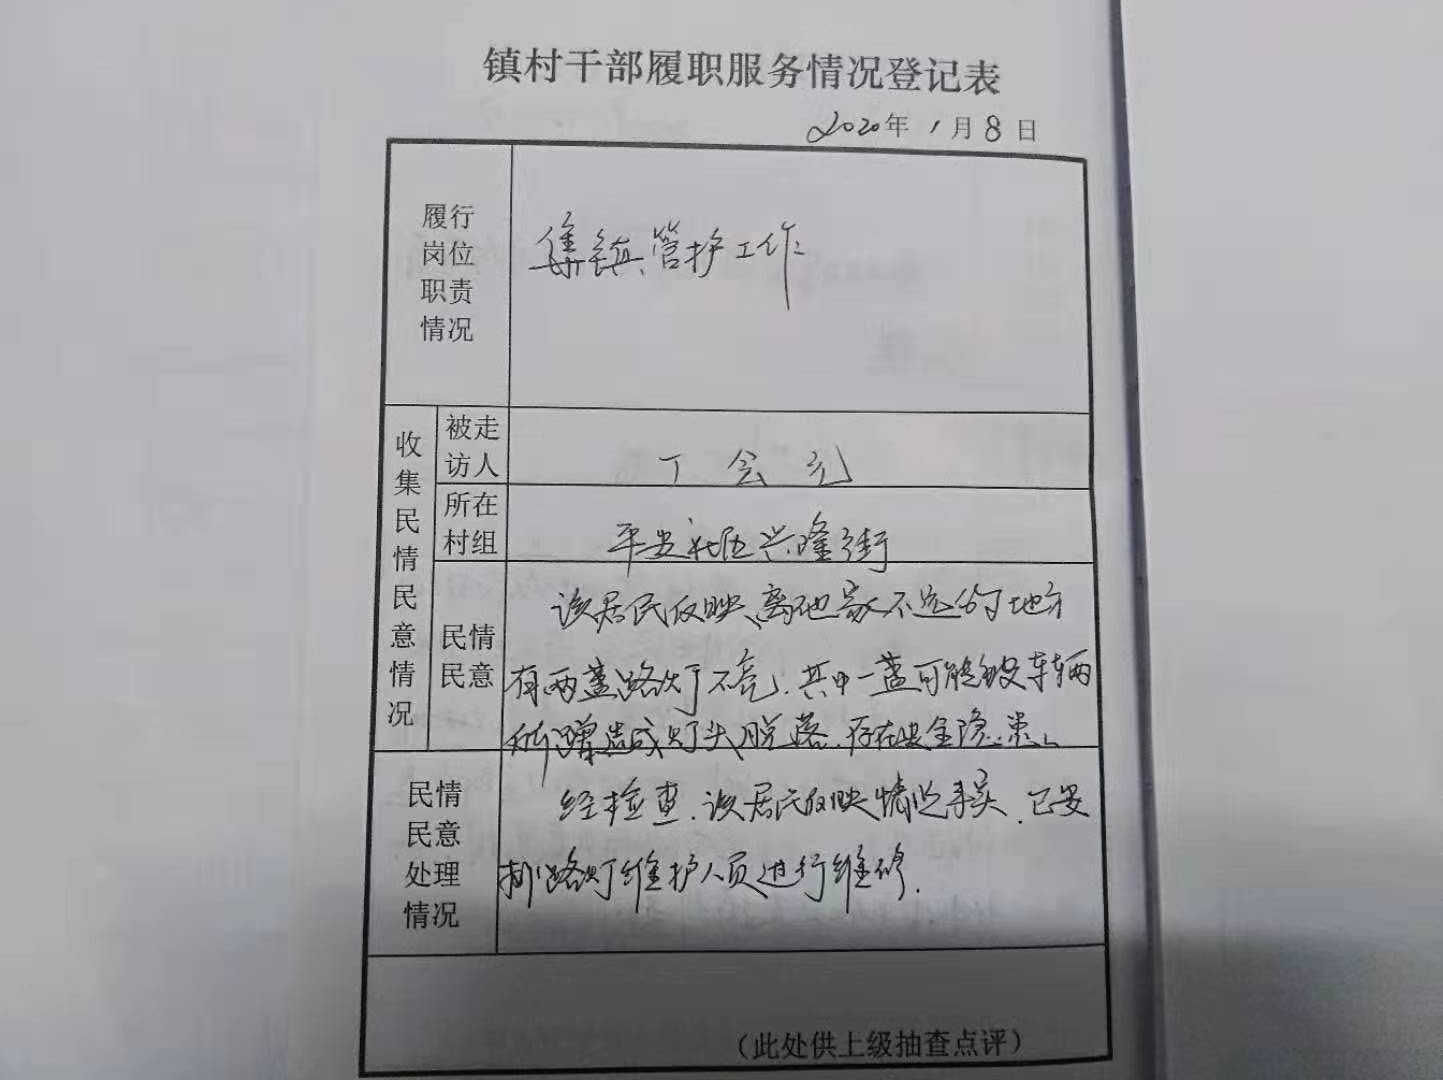 镇村干部履职服务情况登记表
2020年1月8日
履行
岗位
职责
情况
集镇管护工作
收集民情民意情况
被走
访人
丁会元
所在
村组
平安社区兴隆街
民情
民意
该居民反映,离他家不远的地方
有两盏路灯不亮,其中一盏可能被车辆
所蹭造成灯头脱落,存在安全隐患。
民情
民意
处理
情况
经检查,该居民反映情况事实,已安
排路灯维护人员进行维修.
(此处供上级抽查点评)